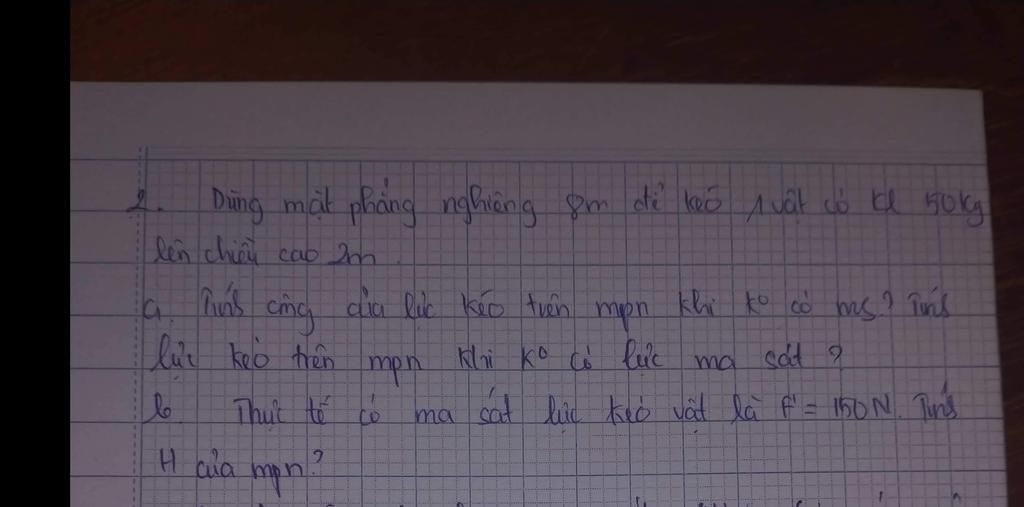 2. Dùng mặt phẳng nghiêng 8m để kéo 1 vật có kl 50kg
lên chiều cao 2m.
a. Tính công của lực kéo trên mpn khi kº có ms? Tính
lực kéo trên mpn khi kº có lực ma sát?
b. Thực tế có ma sát lực kéo vật là F' = 150N. Tính
H của mpn?